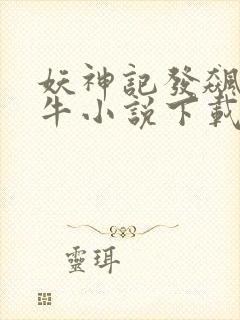 妖神記發飆
牛小說下載
靈珥